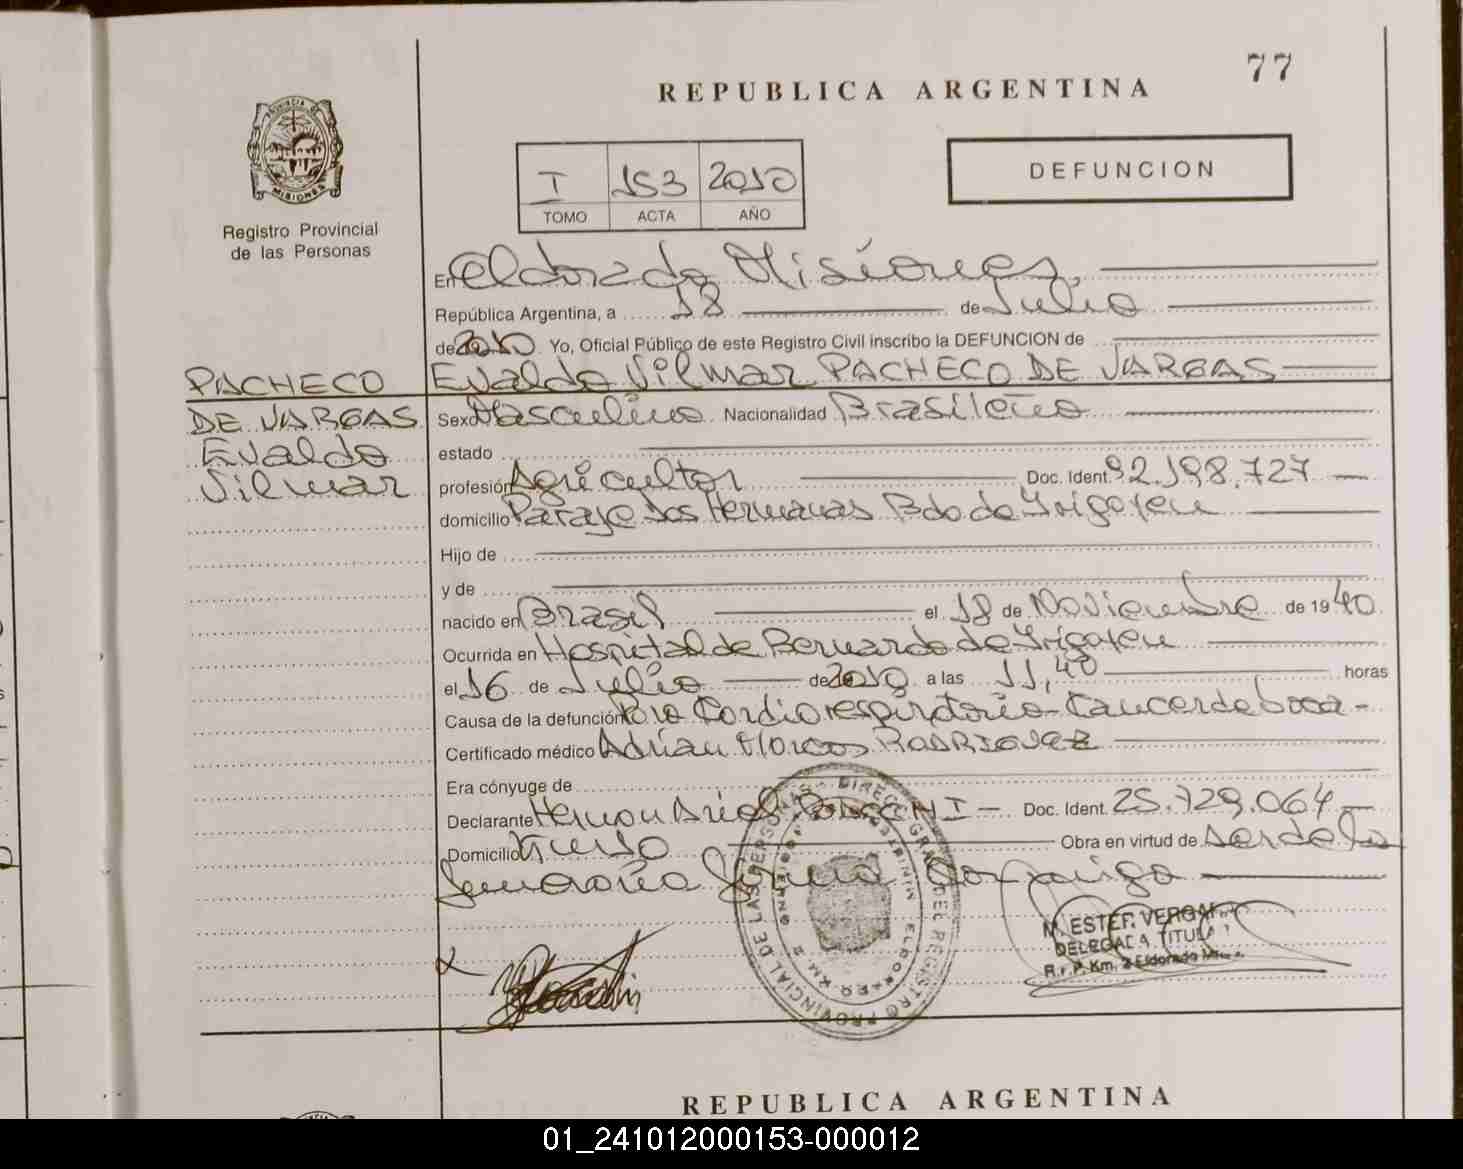 77
REPUBLICA ARGENTINA
PROVINCIA DE MISIONES
Registro Provincial
de las Personas
I 153 2010
TOMO ACTA AÑO
DEFUNCION
En Eldorado Misiones,
República Argentina, a 18 de Julio
de 2010 Yo, Oficial Público de este Registro Civil inscribo la DEFUNCION de
Evaldo Vilmar PACHECO DE VARGAS
PACHECO
DE VARGAS
Evaldo
Vilmar
Sexo Masculino Nacionalidad Brasileño
estado
profesión Agricultor Doc. Ident. 92.198.727
domicilio Paraje Dos Hermanas Bdo de Yrigoyen
Hijo de
y de
nacido en Brasil el 18 de Noviembre de 1940
Ocurrida en Hospital de Bernardo de Yrigoyen
el 16 de Julio de 2010 a las 11,40 horas
Causa de la defunción Paro Cardiorespiratorio - Cancer de boca -
Certificado médico Adrian Marcos RODRIGUEZ
Era cónyuge de
Declarante Hernan Ariel Doc. Ident. 25.729.064
Domicilio Obra en virtud de
DIRECC. GRAL. DEL REGISTRO PROVINCIAL DE LAS PERSONAS
M. ESTEF. VERGA
DELEGADA TITULAR
R.r.P. Km. 2 Eldorado
REPUBLICA ARGENTINA
01_241012000153-000012